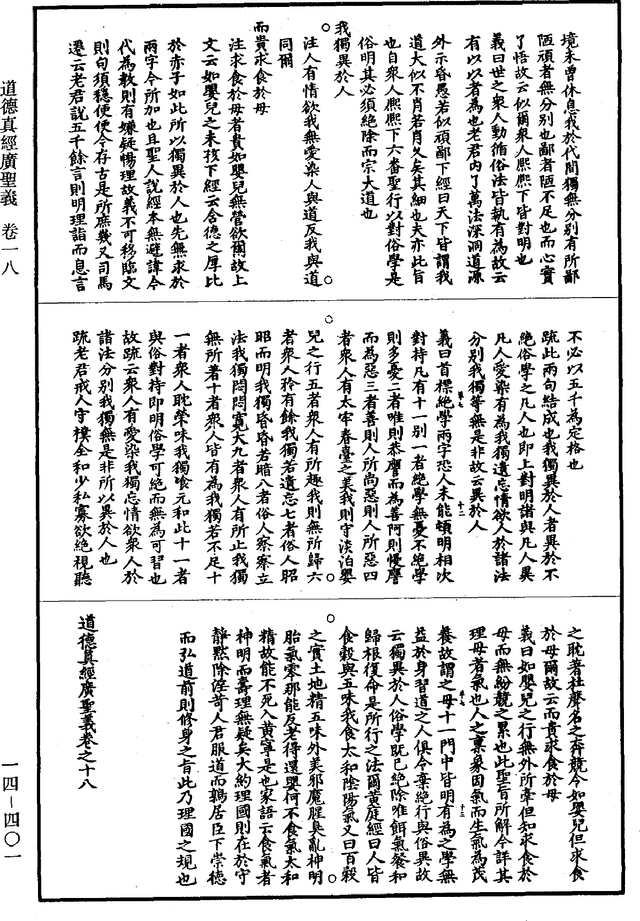 境未曾休息我於代間獨無分別有所鄙
陋頑者無分別也鄙者陋不足也而心實
了悟故云似爾衆人熙熙下皆對明也
義曰世之衆人動循俗法皆執有為故云
有以以者為也老君內了萬法深洞道源
外示昏愚若似頑鄙下經曰天下皆謂我
道大似不肖若肖久矣其細也夫亦此旨
也自衆人熙熙下六番聖行以對俗學是
俗明其必須絕除而宗大道也
我獨異於人
注人有情欲我無愛染人與道反我與道
同爾
而貴求食於母
注求食於母者貴如嬰兒無營欲爾故上
文云如嬰兒之未孩下經云含德之厚比
於赤子如此所以獨異於人也先無求於
兩字今所加也且聖人說經本無避諱今
代為教則有嫌疑暢理故義不可移臨文
則句須穩便便今存古是所庶幾又司馬
遷云老君說五千餘言則明理詣而息言
不必以五千為定格也
疏此兩句結成也我獨異於人者異於不
絕俗學之凡人也即上對明諸與凡人異
凡人愛染有為我獨遺忘情欲人於諸法
分別我獨等無是非故云異於人
義曰首標絕學兩字恐人未能頓明相次
對持凡有十一別一者絕學無憂不絕學
則多憂二者唯則恭譍而為善阿則慢譍
而為惡三者善則人所尚惡則人所惡四
者衆人有太牢春臺之美我則守淡泊嬰
兒之行五者衆人有所趣我則無所歸六
者衆人矜有餘我獨若遺忘七者俗人昭
昭而明我獨昏昏若暗八者俗人察察立
法我獨悶悶寬大九者衆人有所止我獨
無所著十者衆人皆有為我獨若不足十
一者衆人耽榮味我獨飡元和此十一者
與俗對持即明俗學可絕而無為可習也
故疏云衆人有愛染我獨忘情欲衆人於
諸法分別我獨無是非所以異於人也
疏老君戒人守樸全和少私寡欲絕視聽
之耽著杜聲名之奔競今如嬰兒但求食
於母爾故云而貴求食於母
義曰如嬰兒之行無外所牽但知求食於
母而無紛競之累也此聖旨所解今詳其
理母者氣也人之稟象因氣而生氣為茂
養故謂之母十一門中皆明有為之學無
益於身習道之人俱令棄絕行與俗異故
云獨異於人俗學既已絕除唯餌氣餐和
歸根復命是所行之法爾黃庭經曰人皆
食穀與五味我食太和陰陽氣又曰百穀
之實土地精五味外美邪魔腥臭亂神明
胎氣零那能反老得還嬰何不食氣太和
精故能不死入黃寧是也家語云食氣者
神明而壽理無疑矣大約理國則在於守
靜默除淫奇人君服道而鶉居臣下崇德
而弘道前則修身之旨此乃理國之規也
道德真經廣聖義卷之十八
道德真經廣聖義 卷一八
一四－四〇一